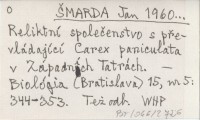 o ŠMARDA Jan 1960...
Reliktní společenstvo s pře-
vládající Carex paniculata
v Západných Tatrách. —
Biológia (Bratislava) 15, nr 5:
344-353. Též odh. WHP